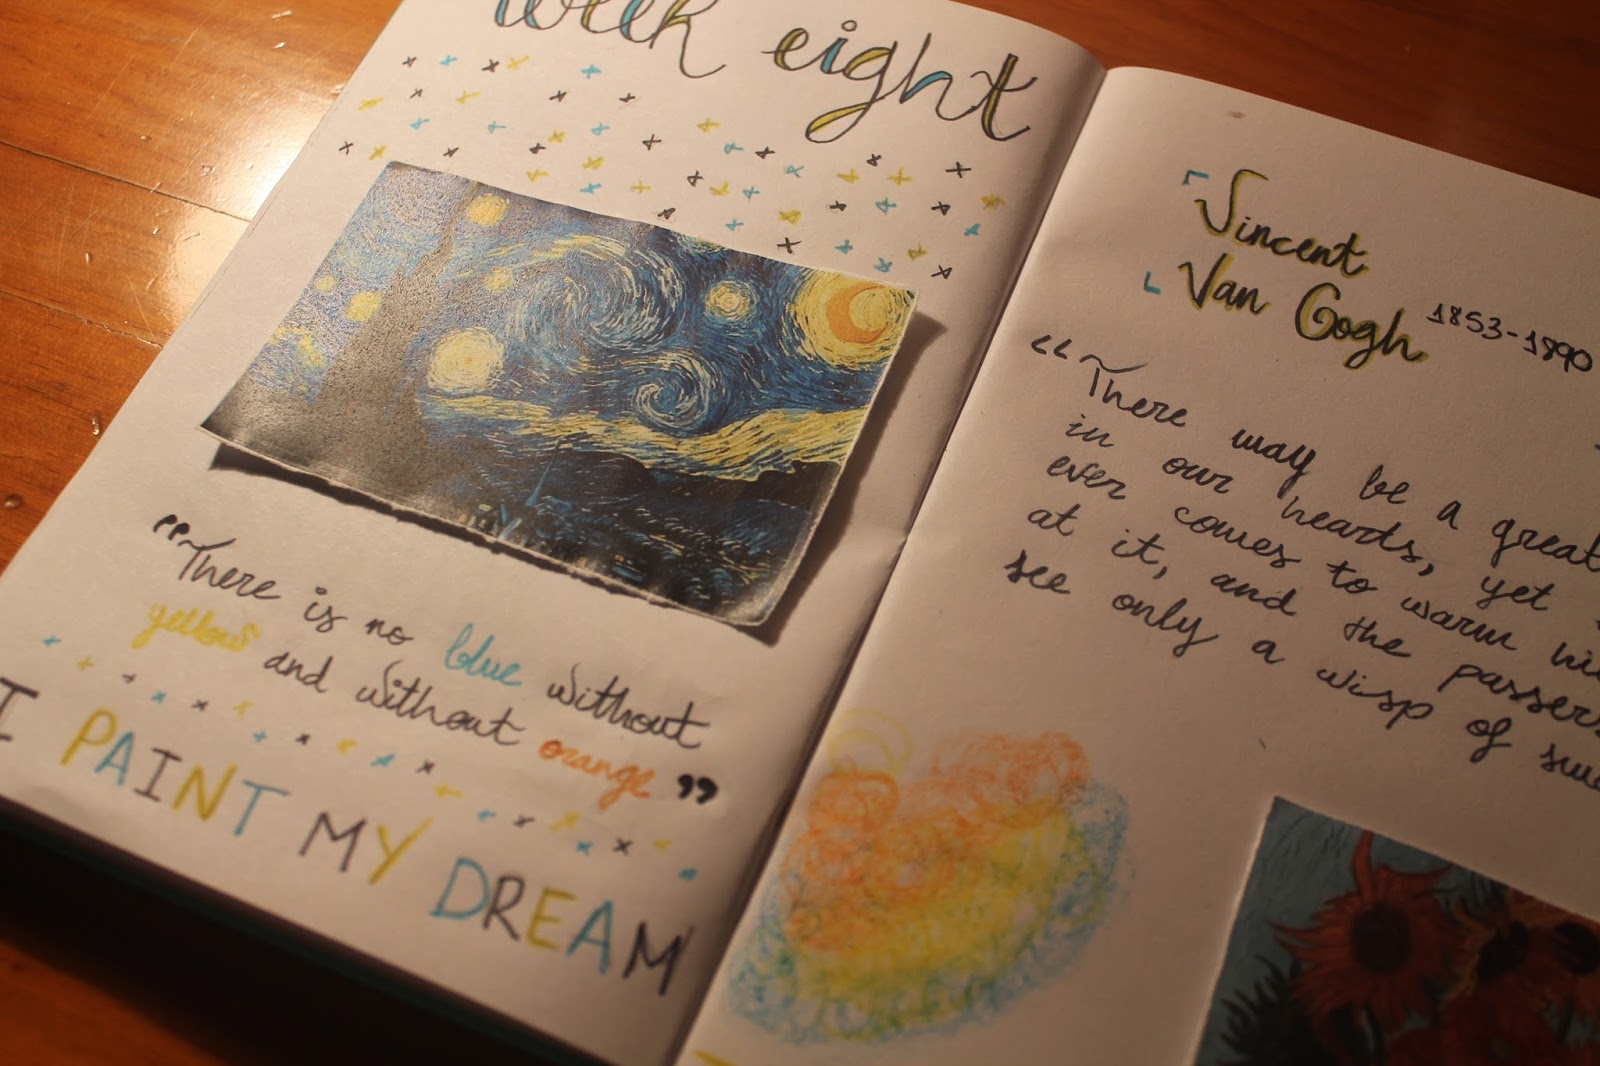 week eight
“There is no blue without
yellow and without orange”
I PAINT MY DREAM
Vincent
Van Gogh 1853-1890
“There may be a great
in our hearts, yet
ever comes to warm
at it, and the passers
see only a wisp of